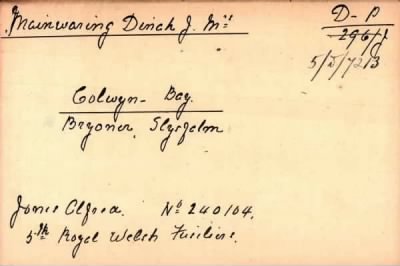 Mainwaring Dinah J. Mrs
D-P
296/1
5/D/7213
Colwyn-Bay.
Brynner, Slysfalm
Jones Alfred. No 240104.
5th Royal Welsh Fusiliers.